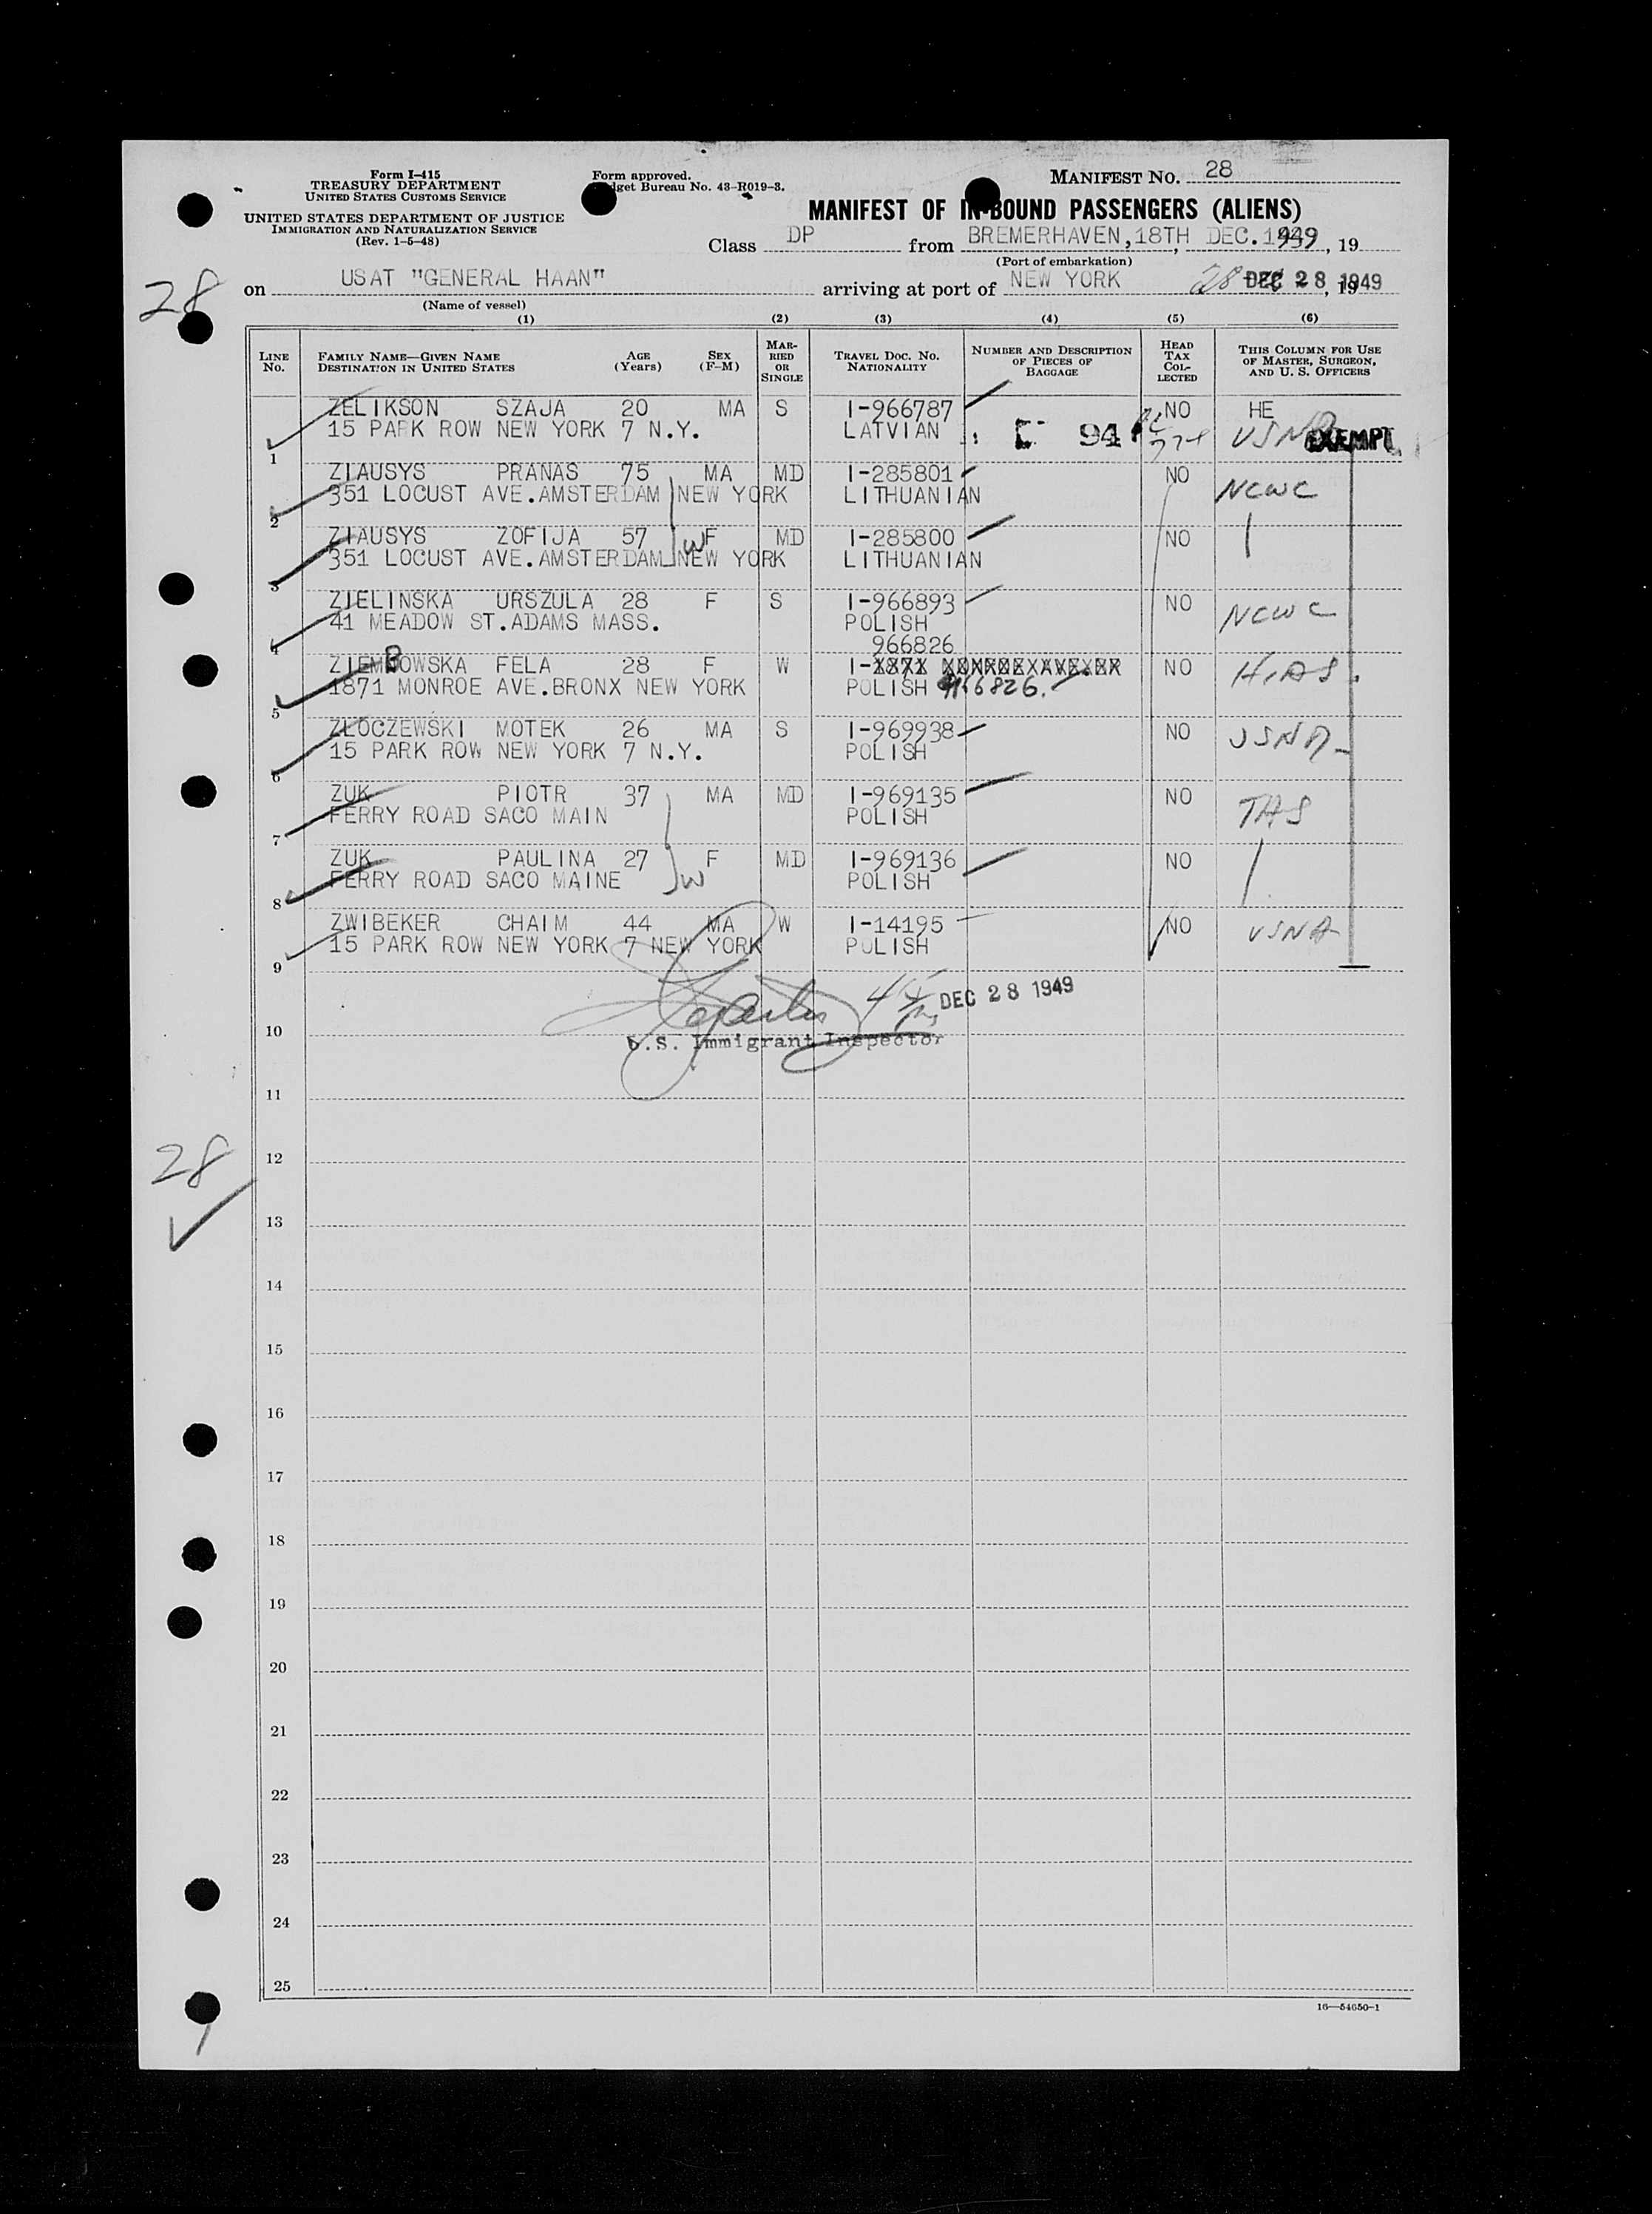 Form I-415
TREASURY DEPARTMENT
UNITED STATES CUSTOMS SERVICE
UNITED STATES DEPARTMENT OF JUSTICE
IMMIGRATION AND NATURALIZATION SERVICE
(Rev. 1-5-48)
Form approved.
dget Bureau No. 43-R019-3.
MANIFEST NO. 28
MANIFEST OF IN-BOUND PASSENGERS (ALIENS)
Class DP from BREMERHAVEN, 18TH DEC. 1949, 19
(Port of embarkation)
28
on USAT "GENERAL HAAN" arriving at port of NEW YORK 28 DEC 28, 1949
(Name of vessel)
(1) (2) (3) (4) (5) (6)
LINE NO. FAMILY NAME—GIVEN NAME DESTINATION IN UNITED STATES AGE (Years) SEX (F-M) MARRIED OR SINGLE TRAVEL DOC. NO. NATIONALITY NUMBER AND DESCRIPTION OF PIECES OF BAGGAGE HEAD TAX COLLECTED THIS COLUMN FOR USE OF MASTER, SURGEON, AND U. S. OFFICERS
ZELIKSON SZAJA 20 MA S I-966787 NO HE
15 PARK ROW NEW YORK 7 N.Y. LATVIAN 94 USNA EXEMPT
1
ZIAUSYS PRANAS 75 MA MD I-285801 NO
351 LOCUST AVE.AMSTERDAM NEW YORK LITHUANIAN NCWC
2
ZIAUSYS ZOFIJA 57 W F MD I-285800 NO
351 LOCUST AVE.AMSTERDAM NEW YORK LITHUANIAN
3
ZIELINSKA URSZULA 28 F S I-966893 NO
41 MEADOW ST.ADAMS MASS. POLISH NCWC
4 966826
ZIEMBOWSKA FELA 28 F W I-1871 MONROE AVE.BX NO HIAS
1871 MONROE AVE.BRONX NEW YORK POLISH 966826.
5
ZLOCZEWSKI MOTEK 26 MA S I-969938 NO USNA
15 PARK ROW NEW YORK 7 N.Y. POLISH
6
ZUK PIOTR 37 MA MD I-969135 NO
FERRY ROAD SACO MAIN POLISH TAS
7
ZUK PAULINA 27 F MD I-969136 NO
FERRY ROAD SACO MAINE W POLISH
8
ZWIBEKER CHAIM 44 MA W I-14195 NO USNA
15 PARK ROW NEW YORK 7 NEW YORK POLISH
9
DEC 28 1949
10
U.S. Immigrant Inspector
11
28
12
13
14
15
16
17
18
19
20
21
22
23
24
25
16—54650-1